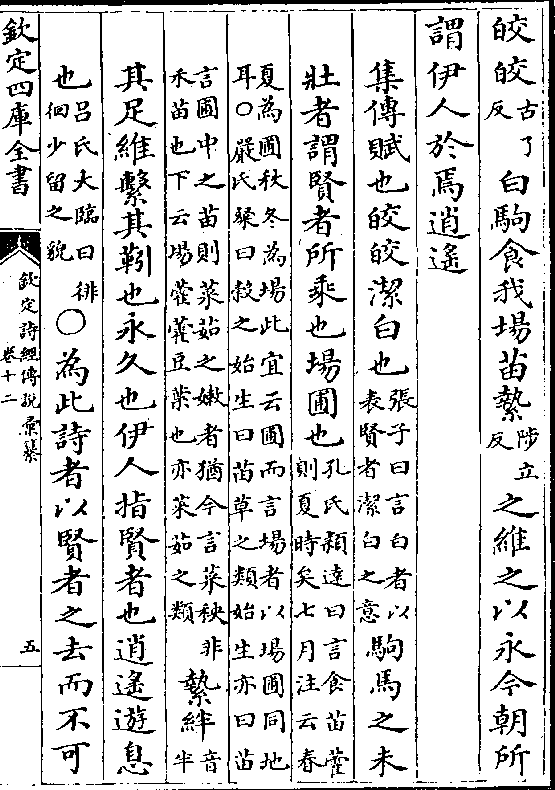 皎皎古了反白駒食我場苗縶陟立反之維之以永今朝所
謂伊人於焉逍遙
集傳賦也皎皎潔白也張子曰言白者以表賢者潔白之意駒馬之未
壯者謂賢者所乘也場圃也孔氏穎達曰言食苗藿則夏時矣七月注云春
夏為圃秋冬為場此宜云圃而言場者以場圃同地耳○嚴氏粲曰穀之始生曰苗草之類始生亦曰苗
言圃中之苗則菜茹之嫩者猶今言菜秧非禾苗也下云場藿藿豆葉也亦菜茹之類縶絆音半
其足維繫其靷也永久也伊人指賢者也逍遙遊息
也呂氏大臨曰徘徊少留之貌○為此詩者以賢者之去而不可
欽定四庫全書
欽定詩經傳說彙纂
卷十二
五